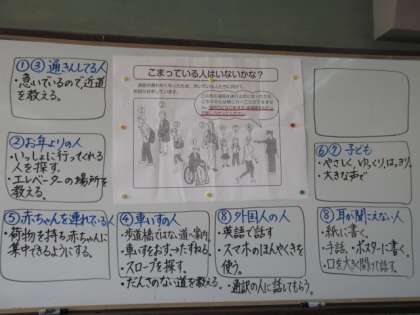 ①③ 通きんしてる人
・急いでいるので、近道
を教える。
こまっている人はいないかな？
②お年よりの人
・いっしょに行ってくれる
人を探す。
・エレベーターの場所を
教える。
⑥⑦ 子ども
・やさしく、ゆっくり、はっきり。
・大きな声で
⑤赤ちゃんを連れている人
・荷物を持ち、赤ちゃんに
集中できるようにする。
④車いすの人
・歩道橋ではない道へ案内。
・車いすをおす。→たずねる。
・スロープを探す。
・だんさのない道を教える。
⑧外国人の人
・英語で話す
・スマホのほんやくきを
使う。
・通訳の人に話してもらう。
⑧耳が聞こえない人
・紙に書く。
・手話、ポスターに書く。
・口を大きく開けて話す。